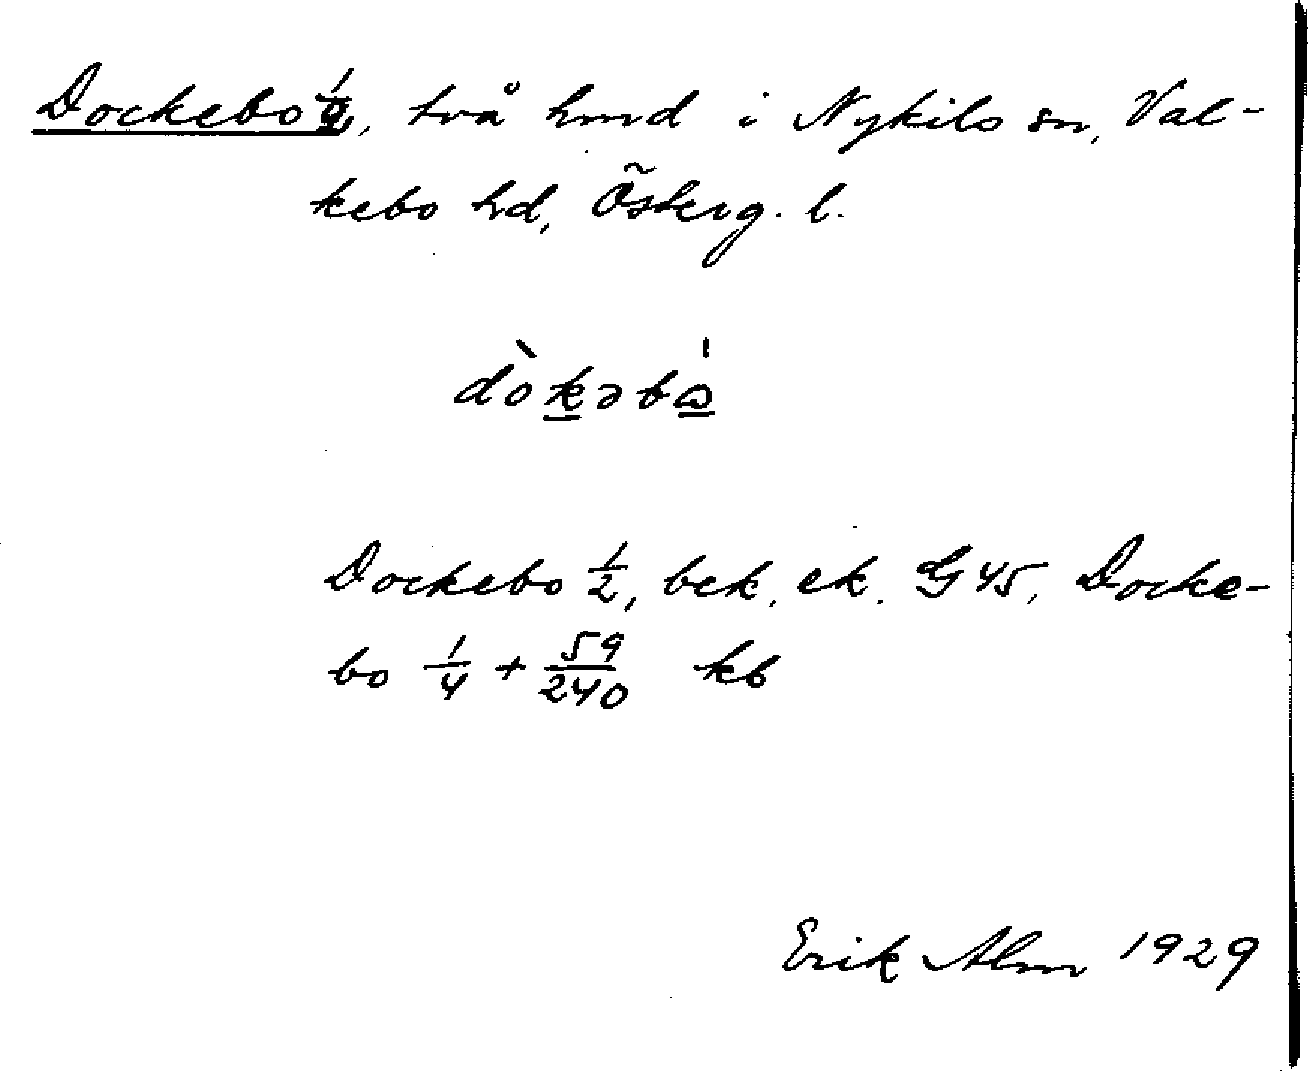 Dockebo, två hmd i Nykils sn, Val-
kebo hd, Österg. l.
dòkəbò
Dockebo 1/2, bek. ek. G 45, Docke-
bo 1/4 + 59/240 kb
Erik Alm 1929